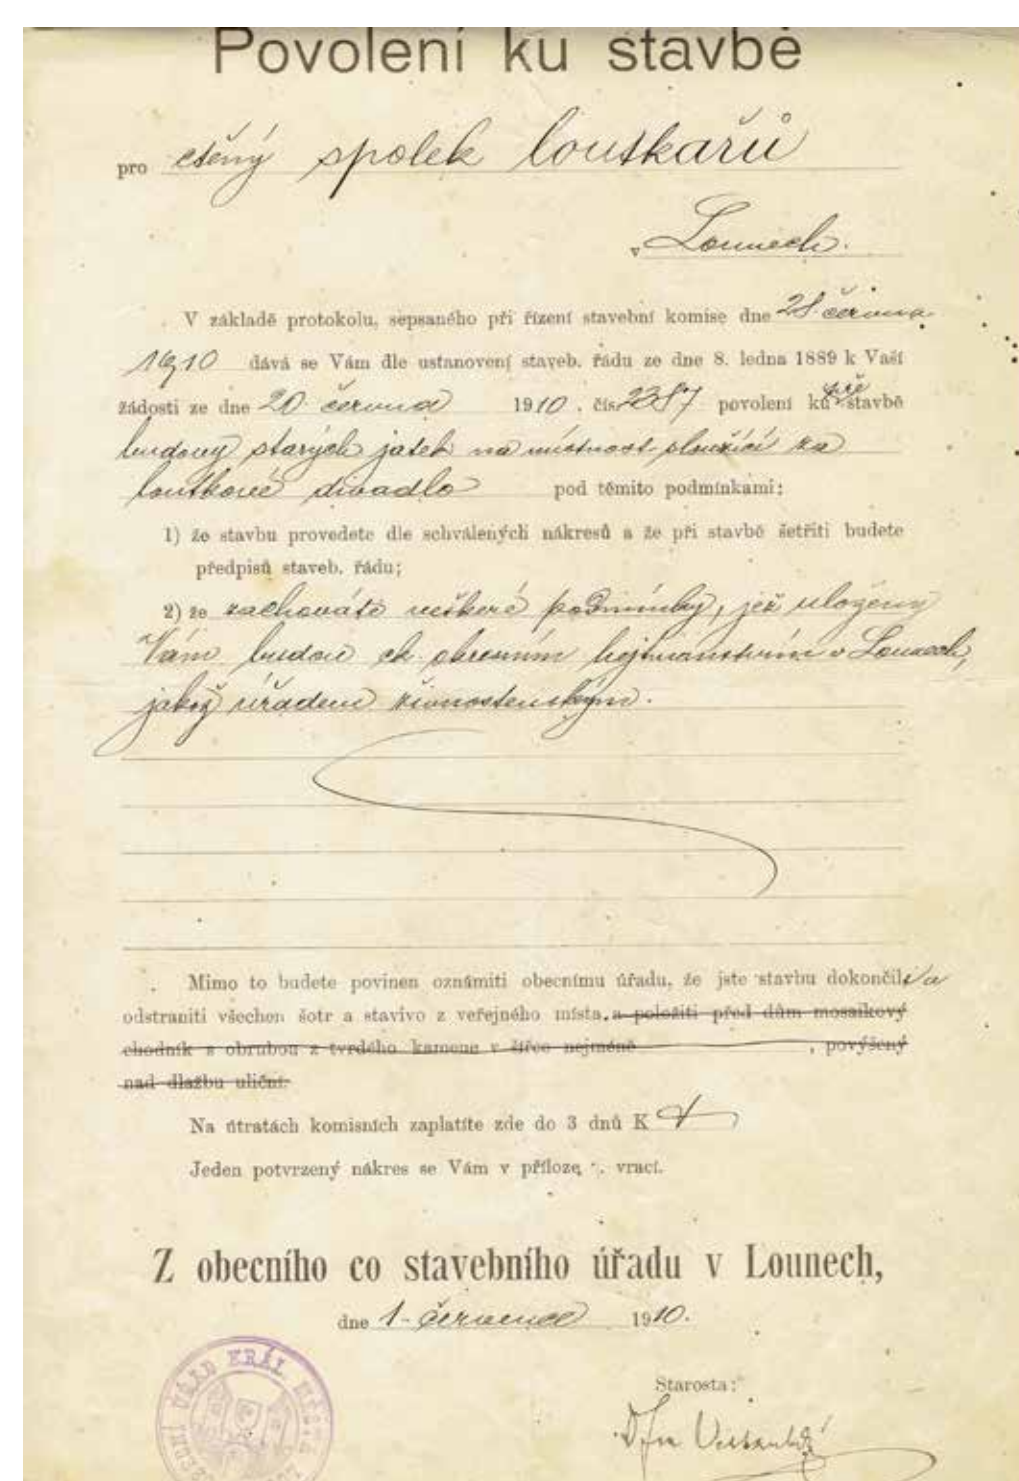 Povolení ku stavbě
pro ctěný spolek loutkařů
v Lounech.
V základě protokolu, sepsaného při řízení stavební komise dne 28. června
1910 dává se Vám dle ustanovení staveb. řádu ze dne 8. ledna 1889 k Vaší
žádosti ze dne 20. června 1910. čís. 2387 povolení ku pře stavbě
budovy starých jatek na místnost sloužící za
loutkové divadlo pod těmito podmínkami:
1) že stavbu provedete dle schválených nákresů a že při stavbě šetřiti budete
předpisů staveb. řádu;
2) že zachováte veškeré podmínky, jež uloženy
Vám budou ck. okresním hejtmanstvím v Lounech,
jakož úřadem živnostenským.
Mimo to budete povinen oznámiti obecnímu úřadu, že jste stavbu dokončili a
odstraniti všechen šotr a stavivo z veřejného místa, a položiti před dům mosaikový
chodník s obrubou z tvrdého kamene v šířce nejméně , povýšený
nad dlažbu uliční.
Na útratách komisních zaplatíte zde do 3 dnů K
Jeden potvrzený nákres se Vám v příloze vrací.
Z obecního co stavebního úřadu v Lounech,
dne 1. července 1910.
ÚŘAD KRÁL. MĚSTA
Starosta: